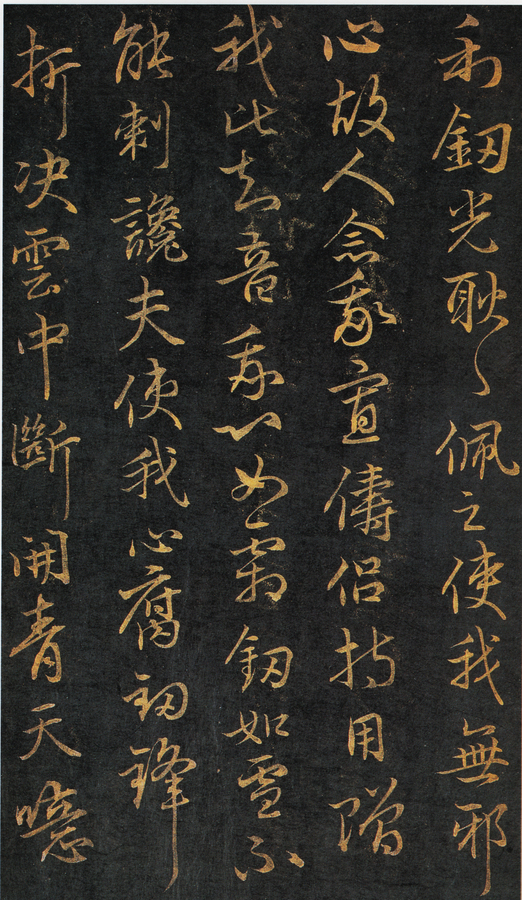 利釼光耿々佩之使我無邪
心故人念我寡儔侶持用贈
我比知音我心如霜釼如雪不
能刺讒夫使我心腐釼鋒
折决雲中斷開青天噫